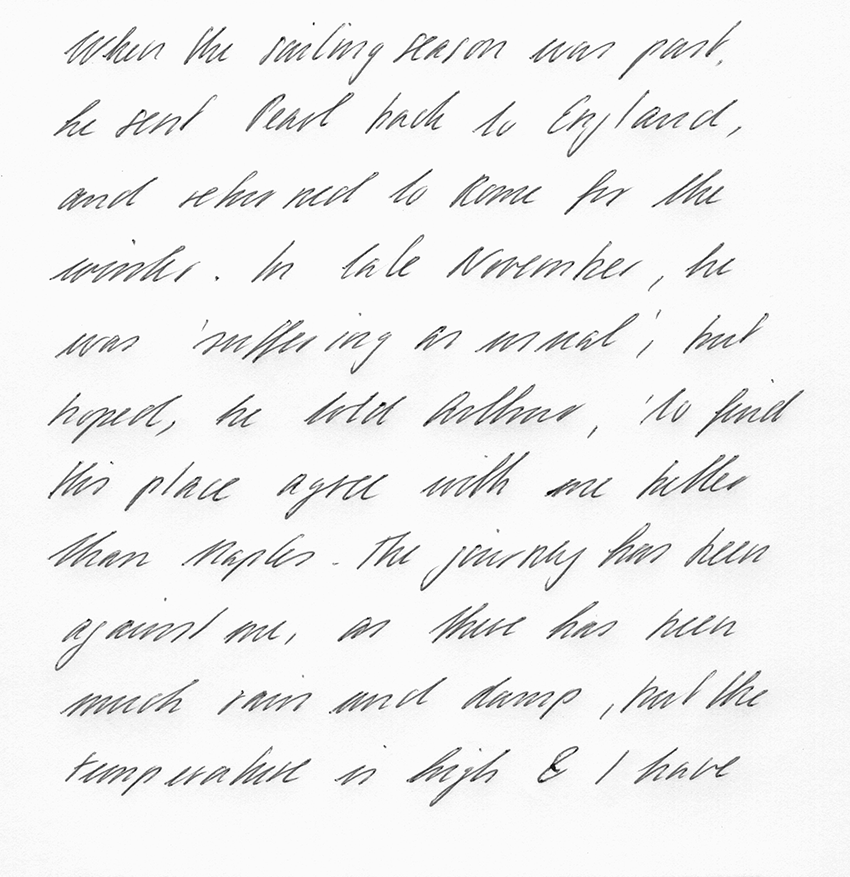 When the sailing season was past,
he sent Pearl back to England,
and returned to Rome for the
winter. In late November, he
was 'suffering as usual', but
hoped, he told Arthur, 'to find
this place agree with me better
than Naples. The journey has been
against me, as there has been
much rain and damp, but the
temperature is high & I have